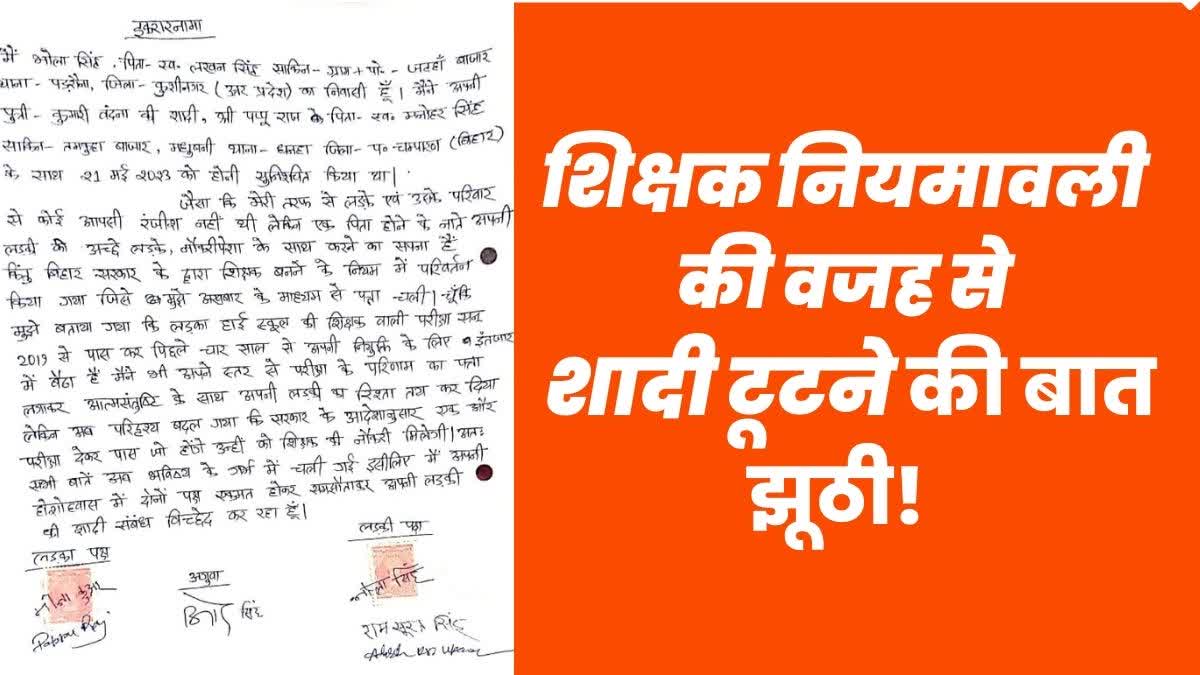 इकरारनामा
मैं भोला सिंह, पिता- स्व. लखन सिंह साकिन- ग्राम + पो. - जटहाँ बाजार
थाना - पडरौना, जिला- कुशीनगर (उत्तर प्रदेश) का निवासी हूँ। मैंने अपनी
पुत्री - कुमारी वंदना की शादी, श्री पप्पू राज के पिता- स्व. मनोहर सिंह
साकिन- तमकुहा बाजार, मधुबनी थाना- धनहा जिला- प. चम्पारण (बिहार)
के साथ 21 मई 2023 को होनी सुनिश्चित किया था।
जैसा कि मेरी तरफ से लड़के एवं उसके परिवार
से कोई आपसी रंजीश नहीं थी लेकिन एक पिता होने के नाते अपनी
लड़की की अच्छे लड़के, नौकरीपेशा के साथ करने का सपना है
किंतु बिहार सरकार के द्वारा शिक्षक बनने के नियम में परिवर्तन
किया गया जिसे मुझे अखबार के माध्यम से पता चली। चूँकि
मुझे बताया गया कि लड़का हाई स्कूल की शिक्षक वाली परीक्षा सन्
2019 से पास कर पिछले चार साल से अपनी नियुक्ति के लिए इंतजार
में बैठा है मैंने भी अपने स्तर से परीक्षा के परिणाम का पता
लगाकर आत्मसंतुष्टि के साथ अपनी लड़की का रिश्ता तय कर दिया
लेकिन अब परिदृश्य बदल गया कि सरकार के आदेशानुसार एक और
परीक्षा देकर पास जो होंगे उन्हीं को शिक्षक की नौकरी मिलेगी। अतः
सभी बातें अब भविष्य के गर्भ में चली गई इसीलिए मैं अपनी
होशोहवास में दोनों पक्ष सहमत होकर समझौताकर अपनी लड़की
की शादी संबंध विच्छेद कर रहा हूँ।
लड़का पक्ष
अगुवा
लड़की पक्ष
भोला सिंह
सिंह
शिक्षक नियमावली
की वजह से
शादी टूटने की बात
झूठी!